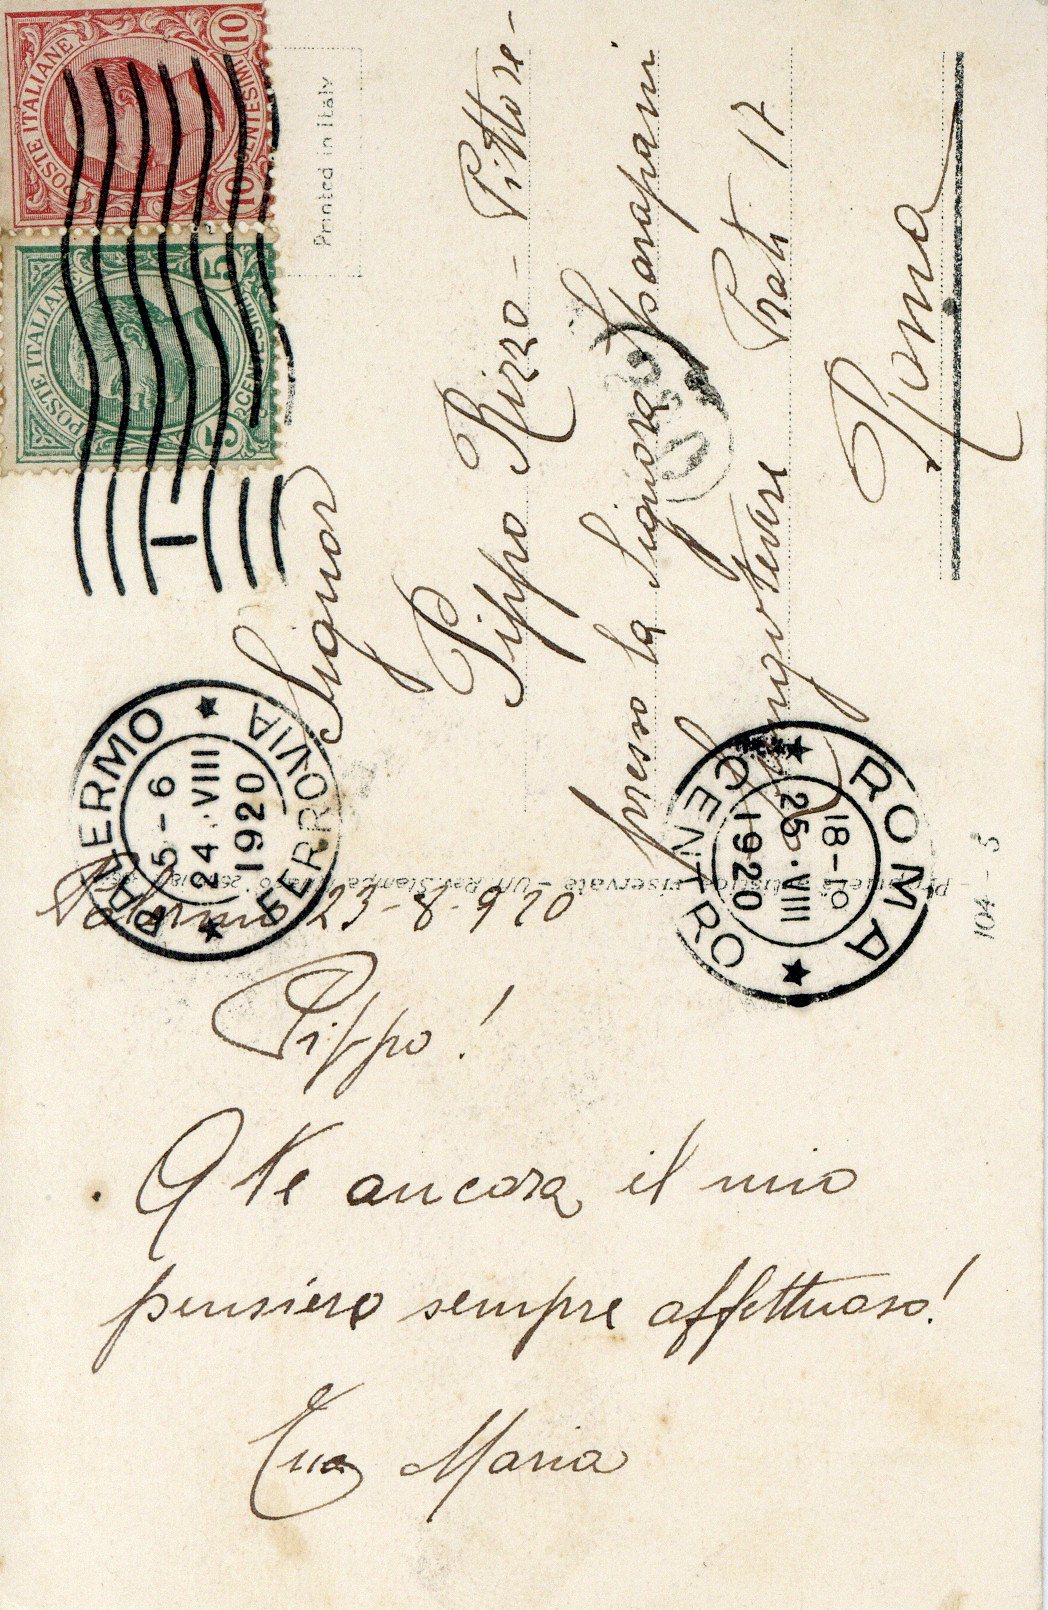 POSTE ITALIANE
10 CENTESIMI 10
POSTE ITALIANE
5 CENTESIMI 5
Printed in Italy
PALERMO
5-6
24.VIII
1920
FERROVIA
Signor
Pippo Rizzo - Pittore -
presso la Signora Sparapani
Lungotevere Prati 17
Roma
ROMA
18-19
25.VIII
1920
CENTRO
104-5
Palermo 23-8-920
Pippo!
A Te ancora il mio
pensiero sempre affettuoso!
Tua Maria